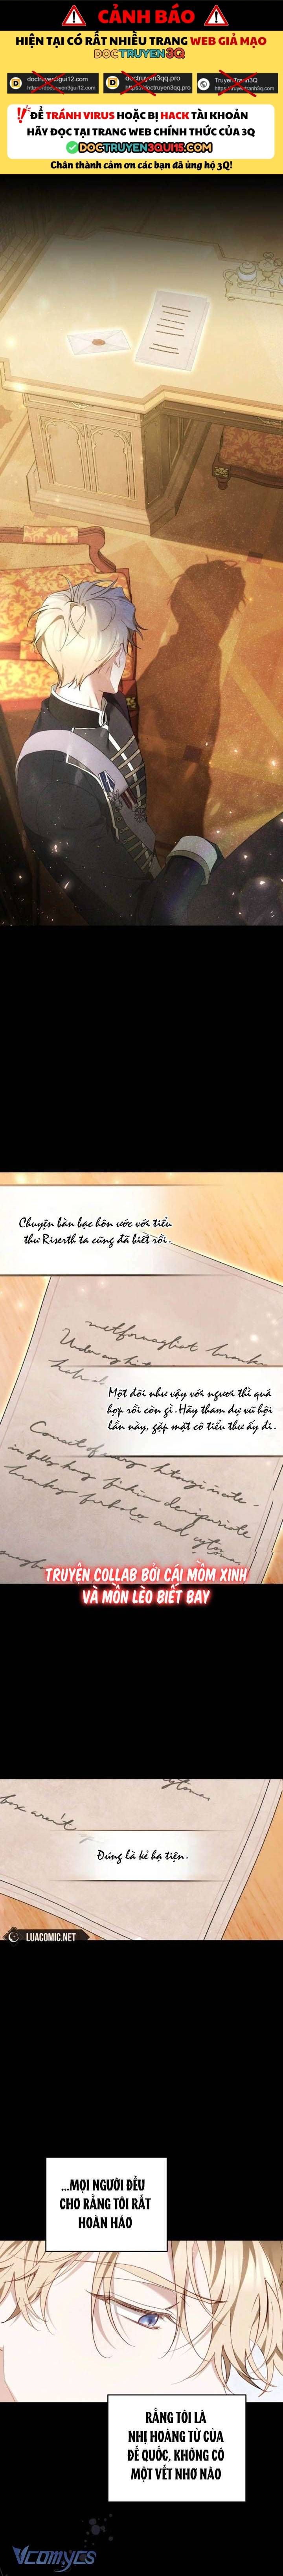 CẢNH BÁO
HIỆN TẠI CÓ RẤT NHIỀU TRANG WEB GIẢ MẠO
DOCTRUYEN3Q
doctruyen3gui12.com
https://doctruyen3gui12.com
doctruyen3qq.pro
https://doctruyen3qq.pro
TruyenTranh3Q
https://truyentranh3q.com
ĐỂ TRÁNH VIRUS HOẶC BỊ HACK TÀI KHOẢN
HÃY ĐỌC TẠI TRANG WEB CHÍNH THỨC CỦA 3Q
DOCTRUYEN3QUI15.COM
Chân thành cảm ơn các bạn đã ủng hộ 3Q!
Chuyện bàn bạc hôn ước với tiểu
thư Riserth ta cũng đã biết rồi.
Một đôi như vậy với ngươi thì quá
hợp rồi còn gì. Hãy tham dự vũ hội
lần này, gặp mặt cô tiểu thư ấy đi.
TRUYỆN COLLAB BỞI CÁI MỒM XINH
VÀ MỒN LÈO BIẾT BAY
Đúng là kẻ hạ tiện.
LUACOMIC.NET
...MỌI NGƯỜI ĐỀU
CHO RẰNG TÔI RẤT
HOÀN HẢO
RẰNG TÔI LÀ
NHỊ HOÀNG TỬ CỦA
ĐẾ QUỐC, KHÔNG CÓ
MỘT VẾT NHƠ NÀO
Vcomycs